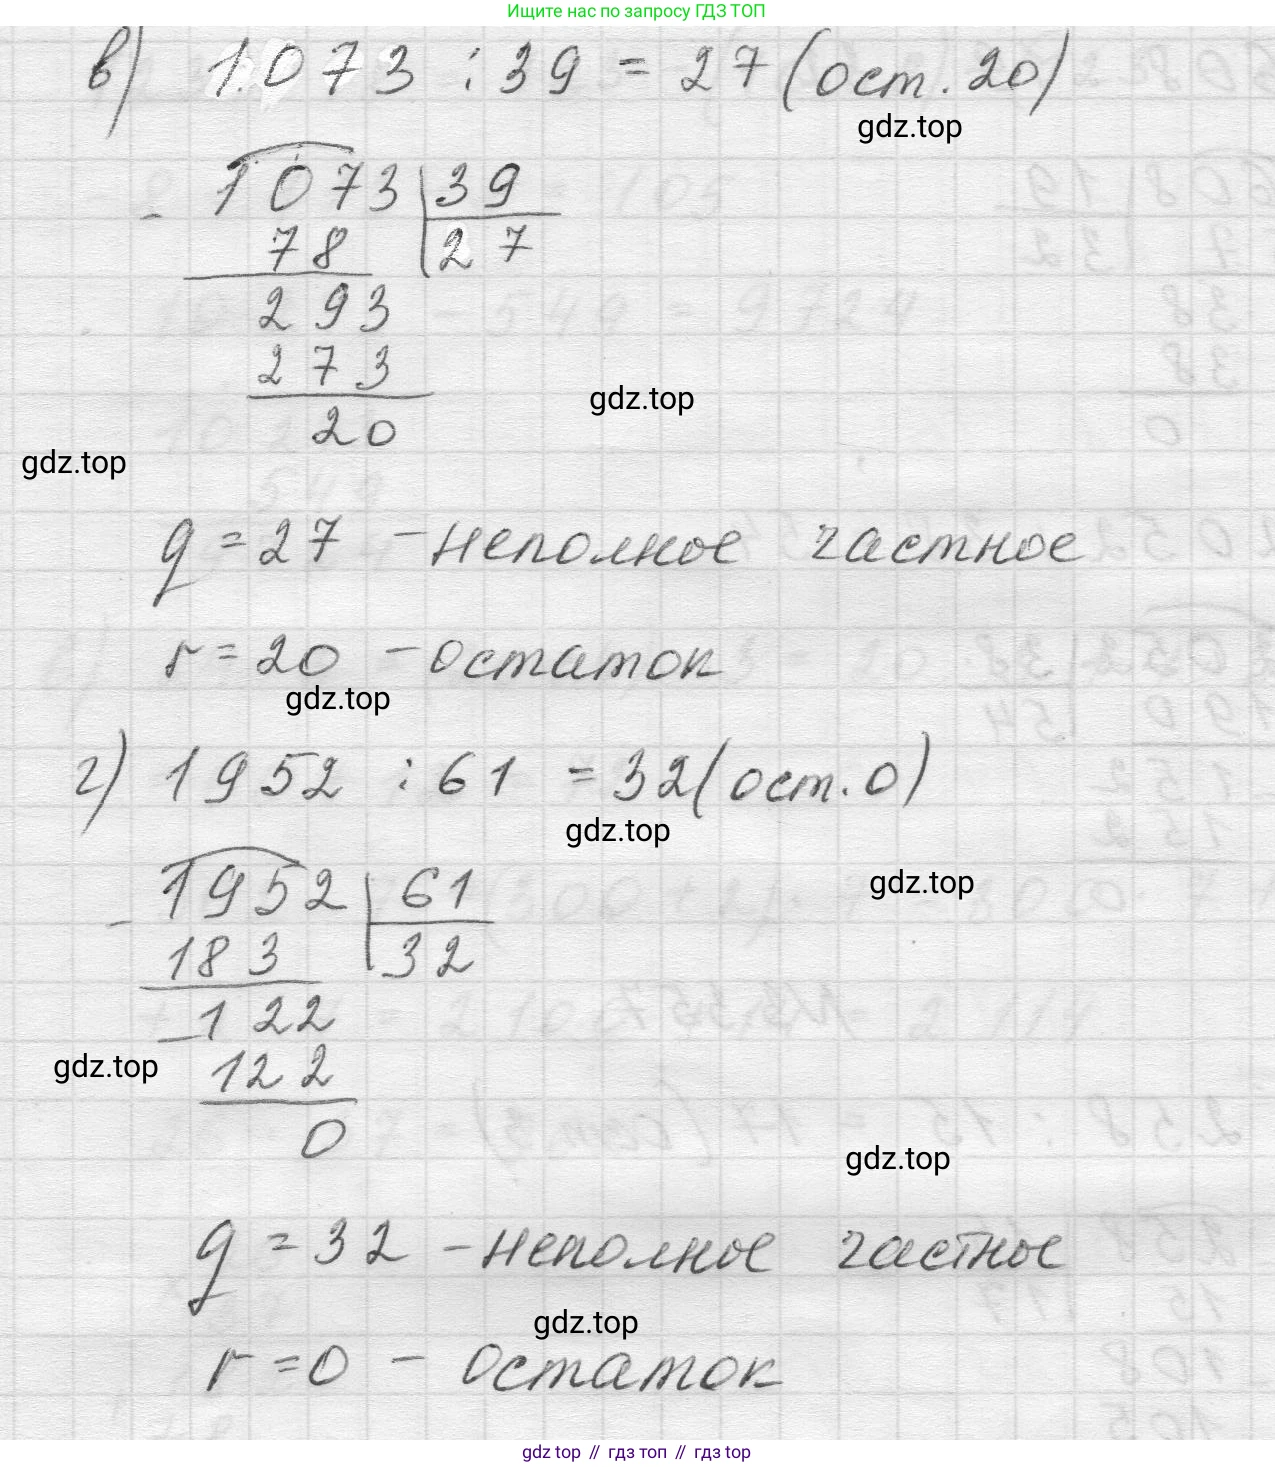 Ищите нас по запросу ГДЗ ТОП
в) 1073 : 39 = 27 (ост. 20)
gdz.top
- 1073 | 39
78 | 27
293
273
gdz.top
20
gdz.top
q = 27 - неполное частное
r = 20 - остаток
gdz.top
г) 1952 : 61 = 32 (ост. 0)
gdz.top
- 1952 | 61
gdz.top
183 | 32
- 122
gdz.top
122
0
gdz.top
q = 32 - неполное частное
gdz.top
r = 0 - остаток
gdz top // гдз топ // гдз top